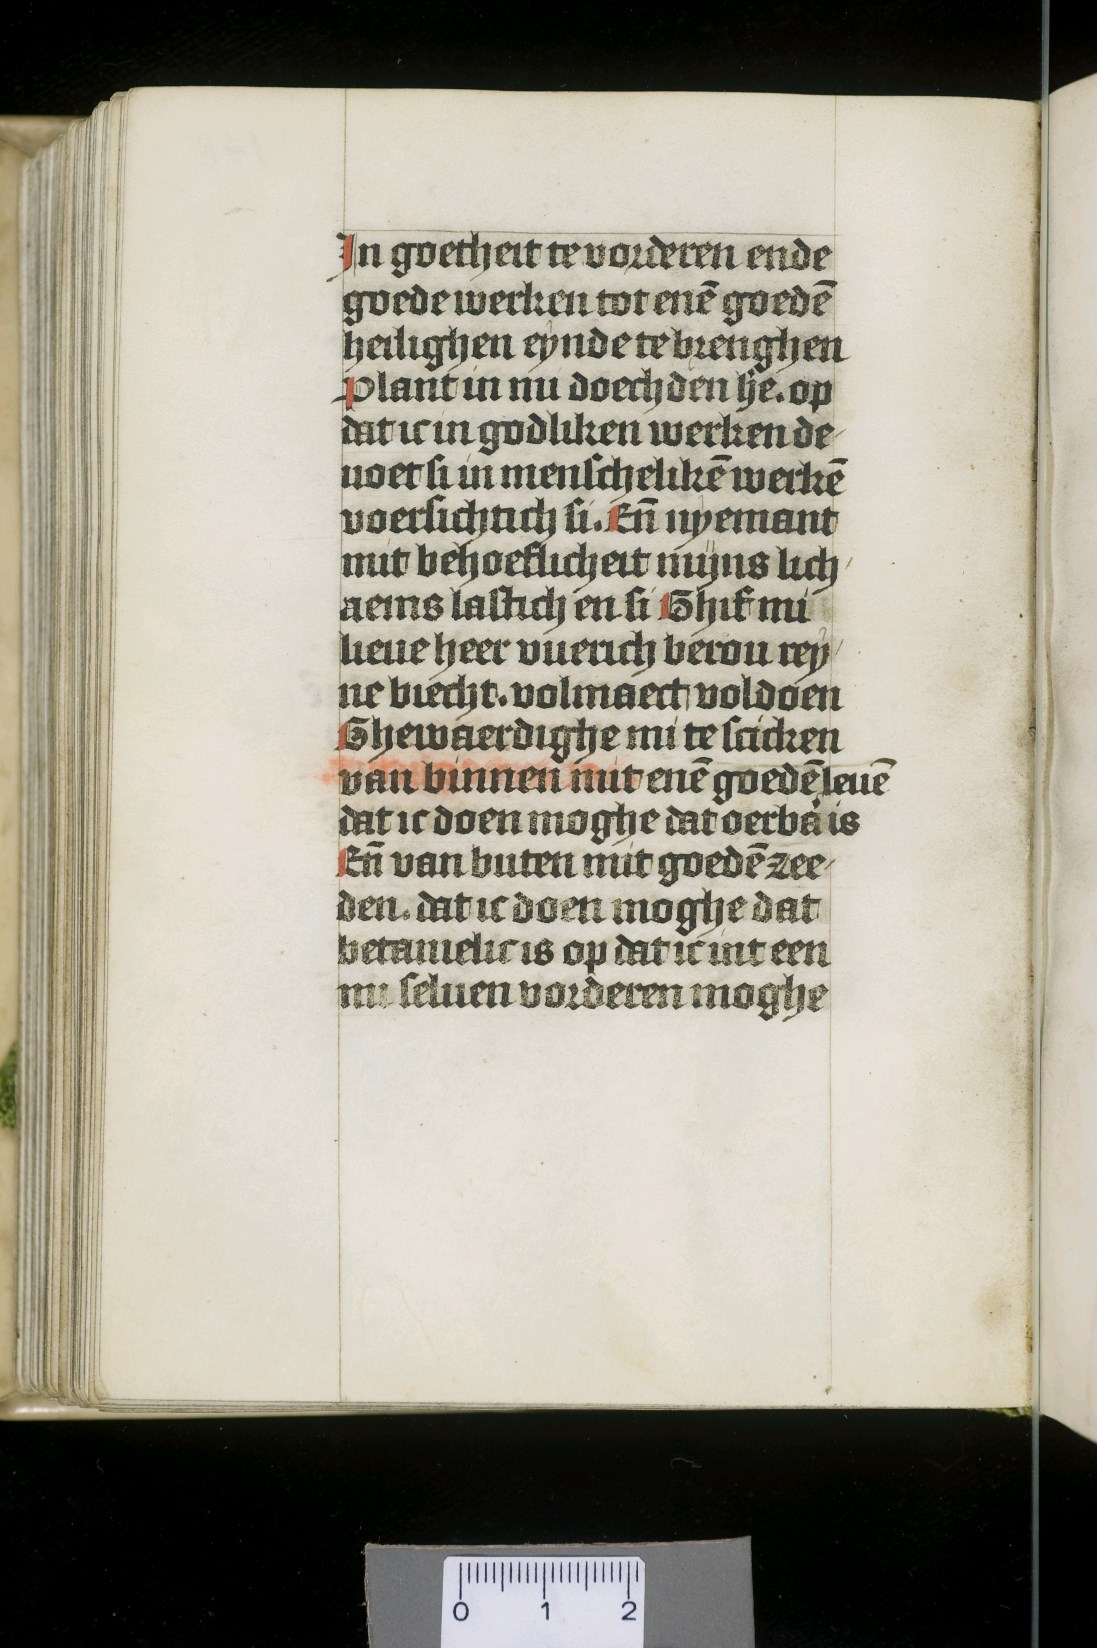 In goetheit te vorderen ende
goede werken tot enē goedē
heilighen eynde te brenghen
Plant in mi doechden he͛. op
dat ic in godliken werken de-
uoet si in menschelikē werkē
voersichtich si. En̄ nyemant
mit behoeflicheit mijns lich-
aems lastich en si Ghif mi
lieue heer vuerich berou rey-
ne biecht. volmaect voldoen
Ghewaerdighe mi te scicken
van binnen mit enē goedē leuē
dat ic doen moghe dat oerba͛ is
En̄ van buten mit goedē zee-
den. dat ic doen moghe dat
betamelic is op dat ic int een
mi seluen vorderen moghe
0 1 2